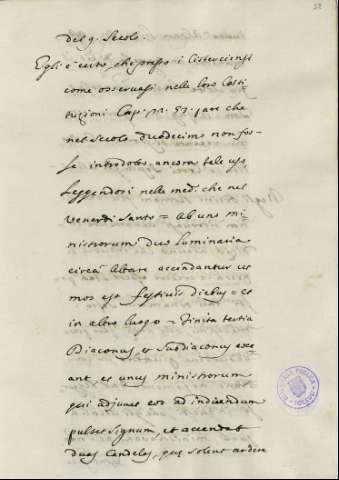 52
del 9. Secolo.
Egli è certo, che presso i Cisterciensi
come osservasi nelle loro Costi-
tuzioni Cap. 53. pare che
nel Secolo duodecimo non fos-
se introdotto ancora tale uso
Leggendosi nelle med.e che nel
Venerdi Santo = Ab uno mi-
nistrorum duo Luminaria
circa Altare accendantur ut
mos est festivis diebus = et
in altro luogo = Finita tertia
Diaconus, et Subdiaconus exe-
ant, et unus ministrorum
qui adjuvet eos ad induendum
pulset Signum, et accendat
duas Candelas, quę solent ardere
BIBLIOTECA PUBLICA
TOLEDO